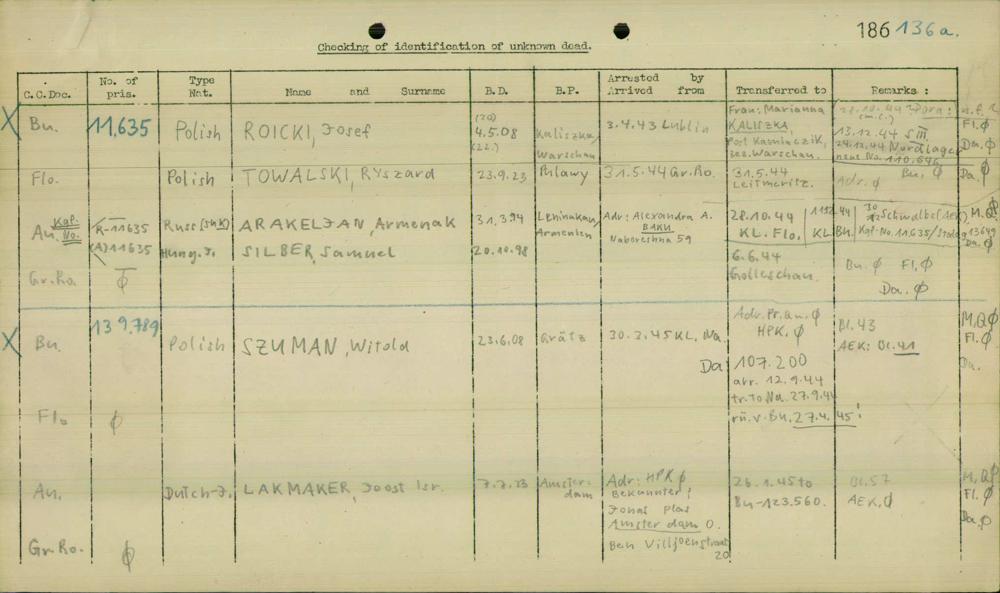 186 136a.
Checking of identification of unknown dead.
C.C.Doc. No. of pris. Type Nat. Name and Surname B.D. B.P. Arrested by Arrived from Transferred to Remarks :
X Bu. 11,635 Polish ROICKI, Josef (20) 4.5.08 (22.) Kaliszka, Warschau 3.4.43 Lublin
Frau: Marianna
KALISZKA,
Post
Bez. Warschau.
28.10.44 Dora:
13.12.44 S III,
24.12.44 Nordlager
neue No. 110.646
Bu, Ø
Fl. Ø
Da. Ø
Flo. Polish TOWALSKI, Ryszard 23.9.23 Pulawy 31.5.44 Gr. Ro. 31.5.44 Leitmeritz. Adr. Ø Da. Ø
Au. Kgf. No. R-11635 Russ ARAKELJAN, Armenak 31.3.94 Leninakan, Armenien
Adr: Alexandra A.
BAKU
Naboreshna 59
28.10.44
KL. Flo.
KL Bu.
Schwalbe
Kgf-No. 11.635/Stalag
M, QØ
13649
Da. Ø
(A) 11635 Hung. J. SILBER, Samuel 20.10.98
6.6.44
Golleschau.
Bu. Ø Fl, Ø
Da. Ø
Gr. Ro Ø
X Bu. 139.789 Polish SZUMAN, Witold 23.6.08 Grätz 30.3.45 KL. Na.
Adr. Pr. qu. Ø
HPK. Ø
Da 107.200
arr. 12.9.44
tr. To Na. 27.9.44
rü. v. Bu. 27.4.45!
Bl. 43
AEK: Bl. 41
M, QØ
Fl. Ø
Da.
Flo Ø
Au. Dutch-J. LAKMAKER, Joost Isr. 7.7.23 Amster-dam
Adr: HPK Ø
Bekannter:
Jonas Plas
Amsterdam O.
Ben Villjoenstraat
20
26.1.45 to
Bu-123.560.
Bl. 57
AEK, Ø
M, QØ
Fl. Ø
Da, Ø
Gr. Ro. Ø